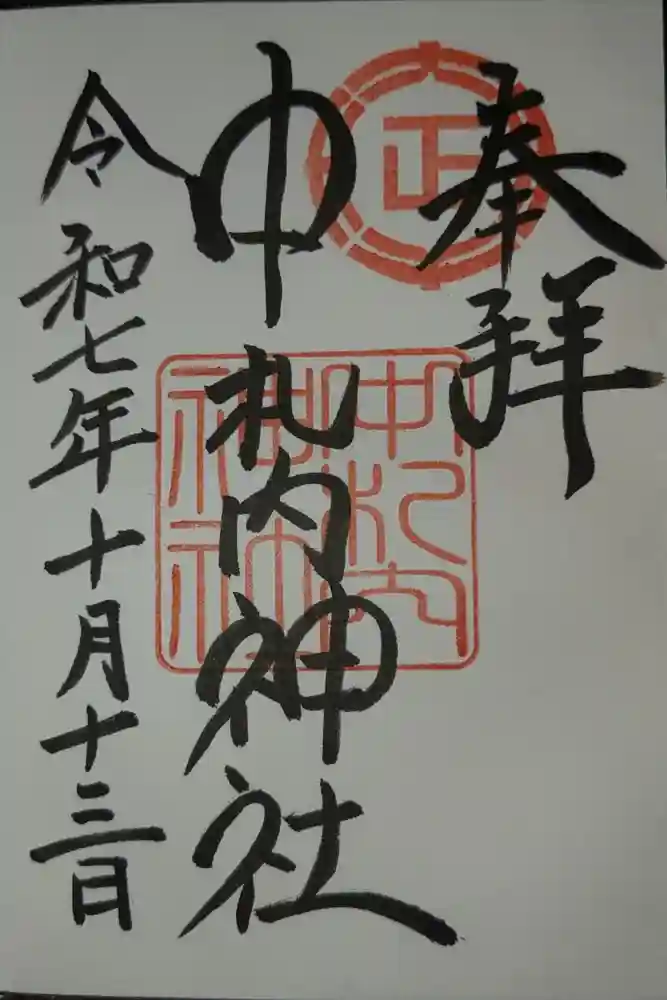 奉拝
中札内神社
令和七年十月十三日
中札内神社